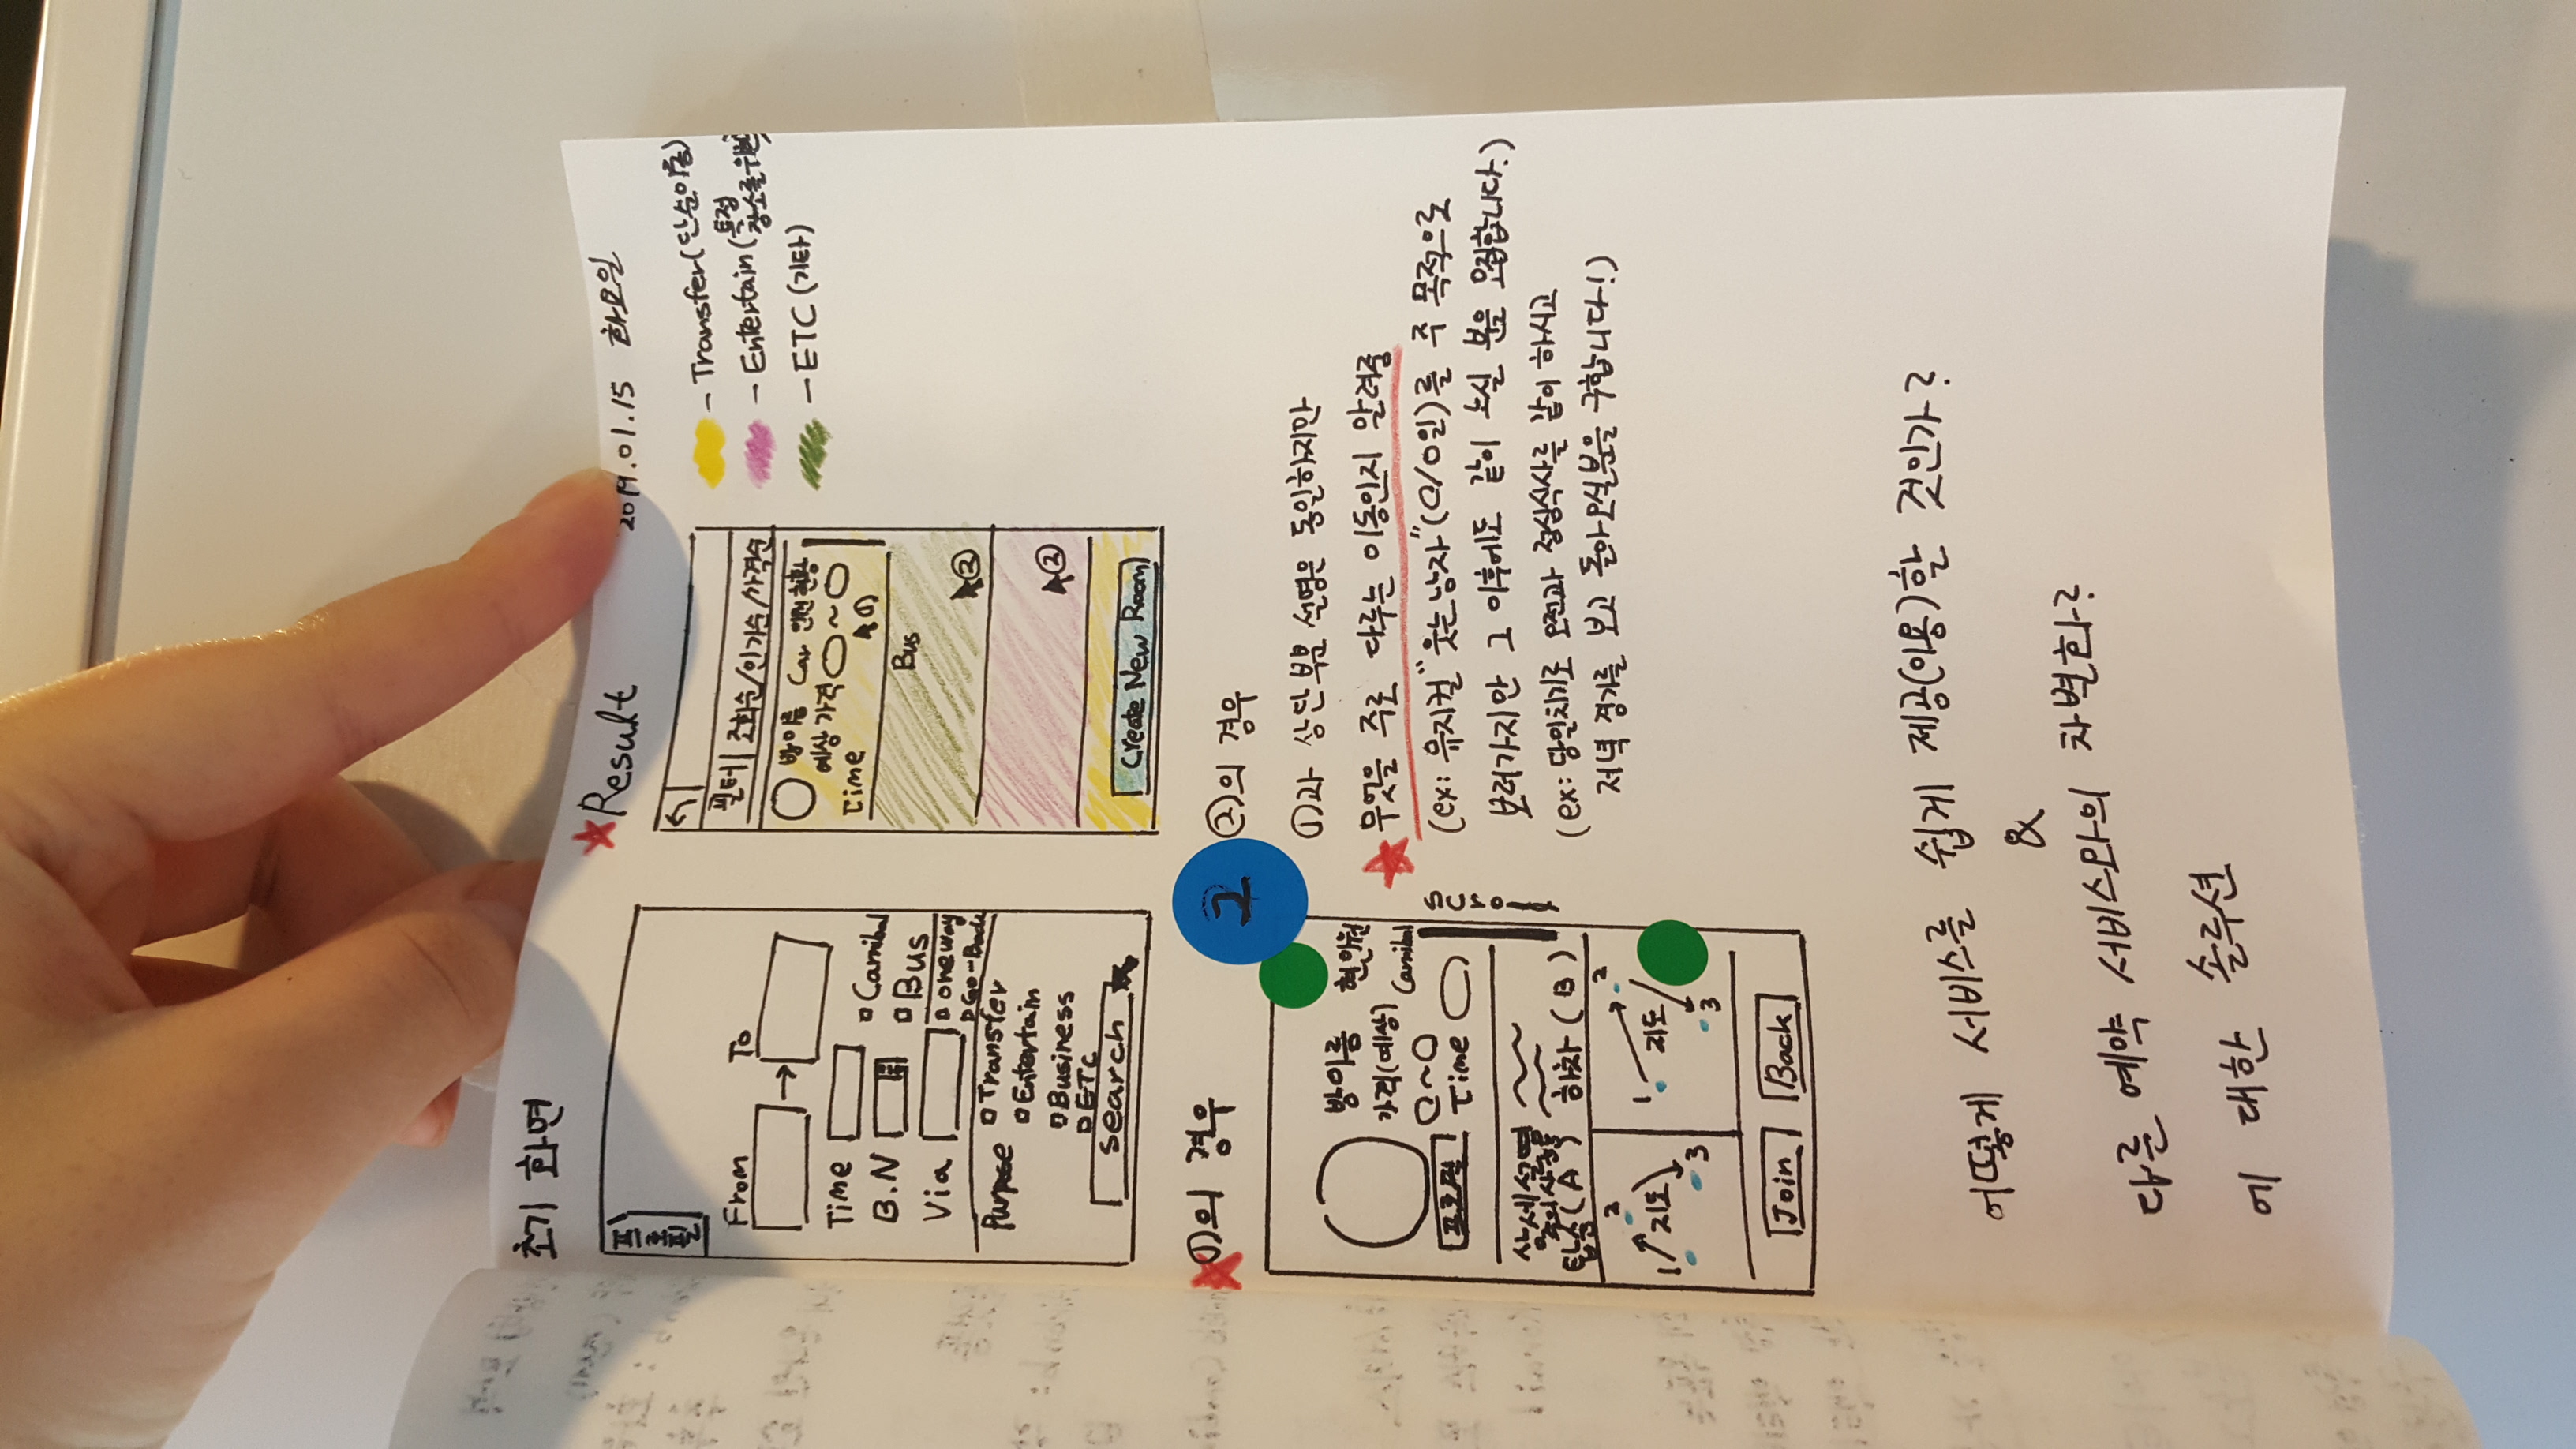 초기 화면
프로필
From
To
Time
B.N
Via
Carnibal
Bus
oneway
Go-Back
Purpose
Transfer
Entertain
Business
ETC
Search
Result
2019.01.15 화요일
필터 조회순/인기순/가격순
방이름 Car 인원현황
예상 가격 ~
Time
①
Bus
②
②
Create New Room
- Transfer(단순이동)
- Entertain(특정
장소를 위한
- ETC (기타)
①의 경우
2
방이름 현인원
가격(예상) Carnibal
~
프로필 Time
Scroll
상세설명
탑승(A) 하차(B)
1 2 3 지도
1 2 3 지도
Join Back
②의 경우
①과 상단부분 설명은 동일하지만
무엇을 주로 다루는 이동인지 알려줌
(ex: 뮤지컬 "웃는남자"(0/0일)를 주 목적으로
보러가지만 그 이후에도 같이 노실 분을 모집합니다.)
(ex: 당일치기로 오전과 점심식사를 같이 하시고
저녁 경기를 보고 돌아오실분을 구합니다!)
어떻게 서비스를 쉽게 제공(이용)할 것인가?
&
다른 예약 서비스와의 차별화?
에 대한 솔루션